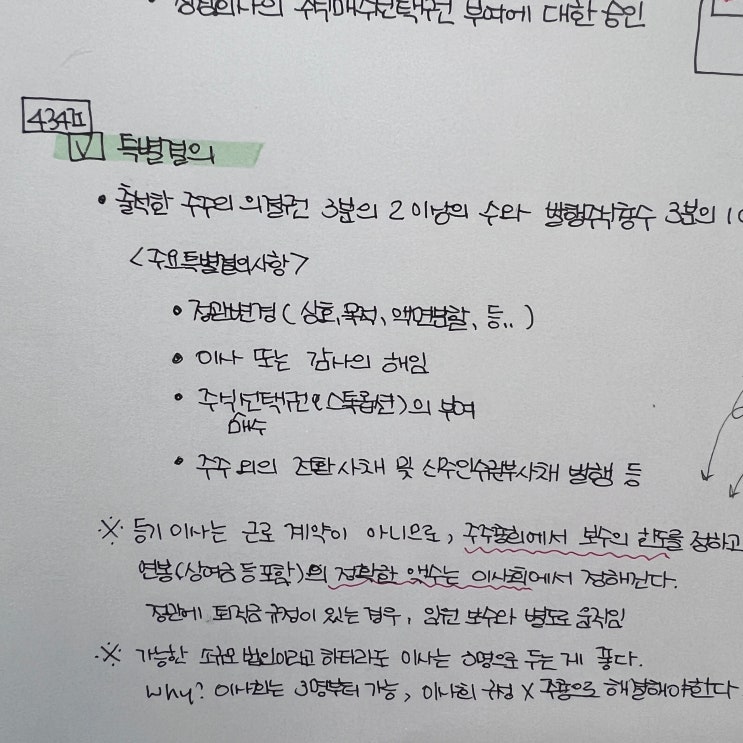 • 상임이사의 주식매수선택권 부여에 대한 승인
434조
☑ 특별결의
• 출석한 주주의 의결권 3분의 2 이상의 수와 발행주식총수 3분의 1
<주요특별결의사항>
• 정관변경(상호, 목적, 액면분할, 등..)
• 이사 또는 감사의 해임
• 주식선택권(스톡옵션)의 부여
매수
• 주주 외의 전환사채 및 신주인수권부사채 발행 등
※ 등기이사는 근로 계약이 아니므로, 주주총회에서 보수의 한도를 정하고
연봉(상여금 등 포함)의 정확한 액수는 이사회에서 정해진다.
정관에 퇴직금 규정이 있는 경우, 임원 보수와 별도로 움직임
※ 가능한 소규모 법인이라고 하더라도 이사는 3명으로 두는 게 좋다.
why? 이사회는 3명부터 가능, 이사회 규정 X 주총으로 해결해야한다